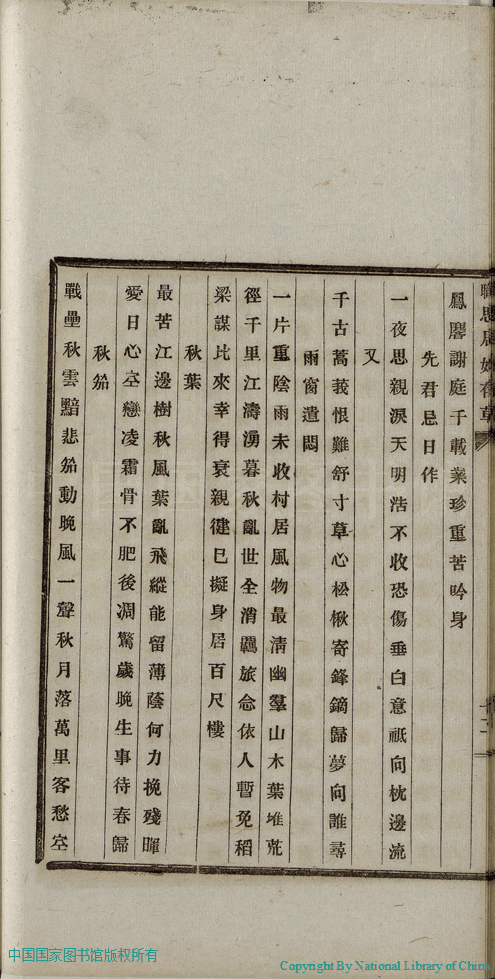 鳳麐謝庭千載業珍重苦吟身
先君忌日作
一夜思親淚天明浩不收恐傷垂白意祇向枕邊流
又
千古蒿莪恨難舒寸草心松楸寄鋒鏑歸夢向誰尋
雨窗遣悶
一片重陰雨未收村居風物最淸幽羣山木葉堆荒
徑千里江濤湧暮秋亂世全消羈旅念依人暫免稻
梁謀比來幸得衰親健已擬身居百尺樓
秋葉
最苦江邊樹秋風葉亂飛縱能留薄蔭何力挽殘暉
愛日心空戀凌霜骨不肥後凋驚歲晚生事待春歸
秋笳
戰壘秋雲黯悲笳動晚風一聲秋月落萬里客愁空
中国国家图书馆版权所有
Copyright By National Library of China